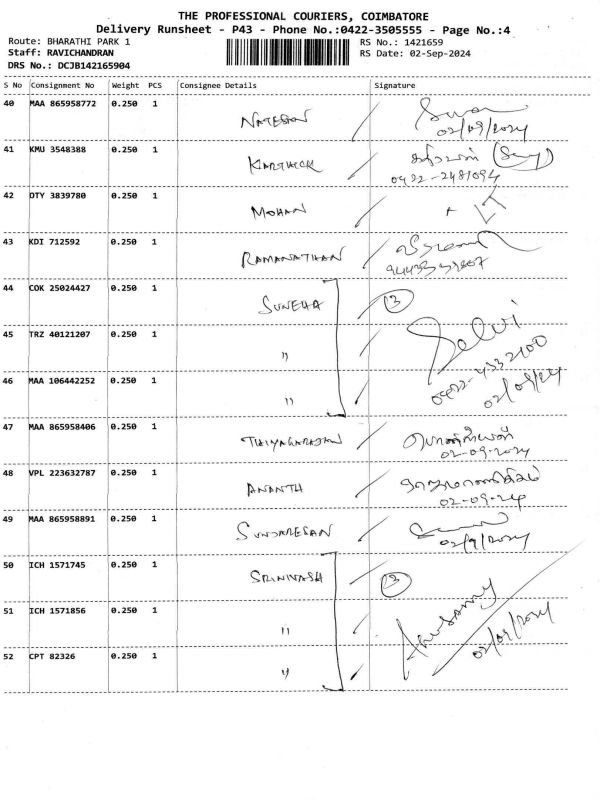 THE PROFESSIONAL COURIERS, COIMBATORE
Delivery Runsheet - P43 - Phone No.:0422-3505555 - Page No.:4
Route: BHARATHI PARK 1 RS No.: 1421659
Staff: RAVICHANDRAN RS Date: 02-Sep-2024
DRS No.: DCJB142165904
S No Consignment No Weight PCS Consignee Details Signature
40 MAA 865958772 0.250 1 NATESAN
02/09/2024
41 KMU 3548388 0.250 1 KARTHICK
0422-2481094
42 OTY 3839780 0.250 1 MOHAN
43 KDI 712592 0.250 1 RAMANATHAN
44 COK 25024427 0.250 1 SUNEHA 3
45 TRZ 40121207 0.250 1 " Selvi
0422-4332100
46 MAA 106442252 0.250 1 " 02/09/24
47 MAA 865958406 0.250 1 THIYAGARAJAN
02-09-2024
48 VPL 223632787 0.250 1 ANANTH
02-09-24
49 MAA 865958891 0.250 1 SUNDARESAN
02/9/2024
50 ICH 1571745 0.250 1 SRINIVASH 3
51 ICH 1571856 0.250 1 " 02/09/2024
52 CPT 82326 0.250 1 "